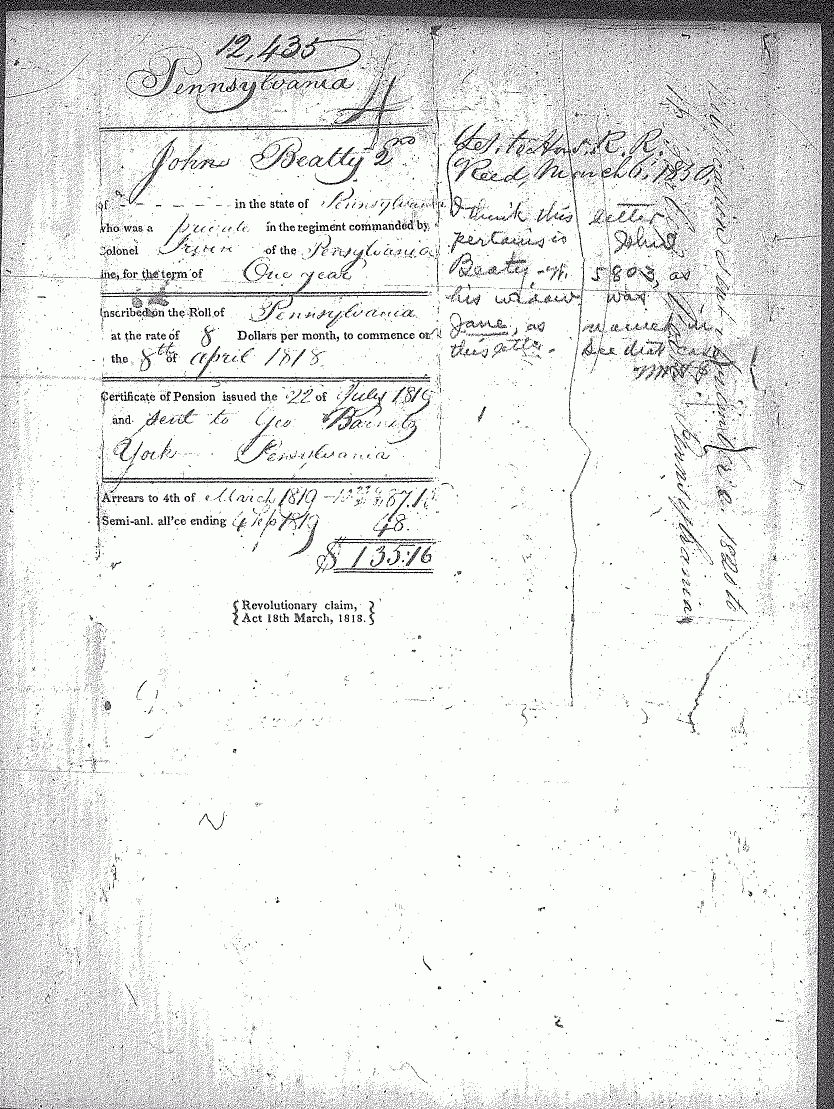 12,435
Pennsylvania
4
John Beatty 2nd
of - - - - - - in the state of Pennsylvania
who was a private in the regiment commanded by
Colonel Irvin of the Pensylvania
ine, for the term of One year
Inscribed on the Roll of Pennsylvania
at the rate of 8 Dollars per month, to commence on
the 8th of april 1818.
Certificate of Pension issued the 22 of July 1819
and sent to Geo Barnitz
York Pensylvania
Arrears to 4th of March 1819 87.16
Semi-anl. all'ce ending 4 Sep 1819 48.
$ 135.16
{Revolutionary claim,
Act 18th March, 1818.}
Let. to Hon. R. R.
Reed, March 6, 1830.
I think this letter
pertains to John
Beaty - W. 5803, as
his widow was
Jane, as named in
this letter. See that case
1820 to
Pennsylvania